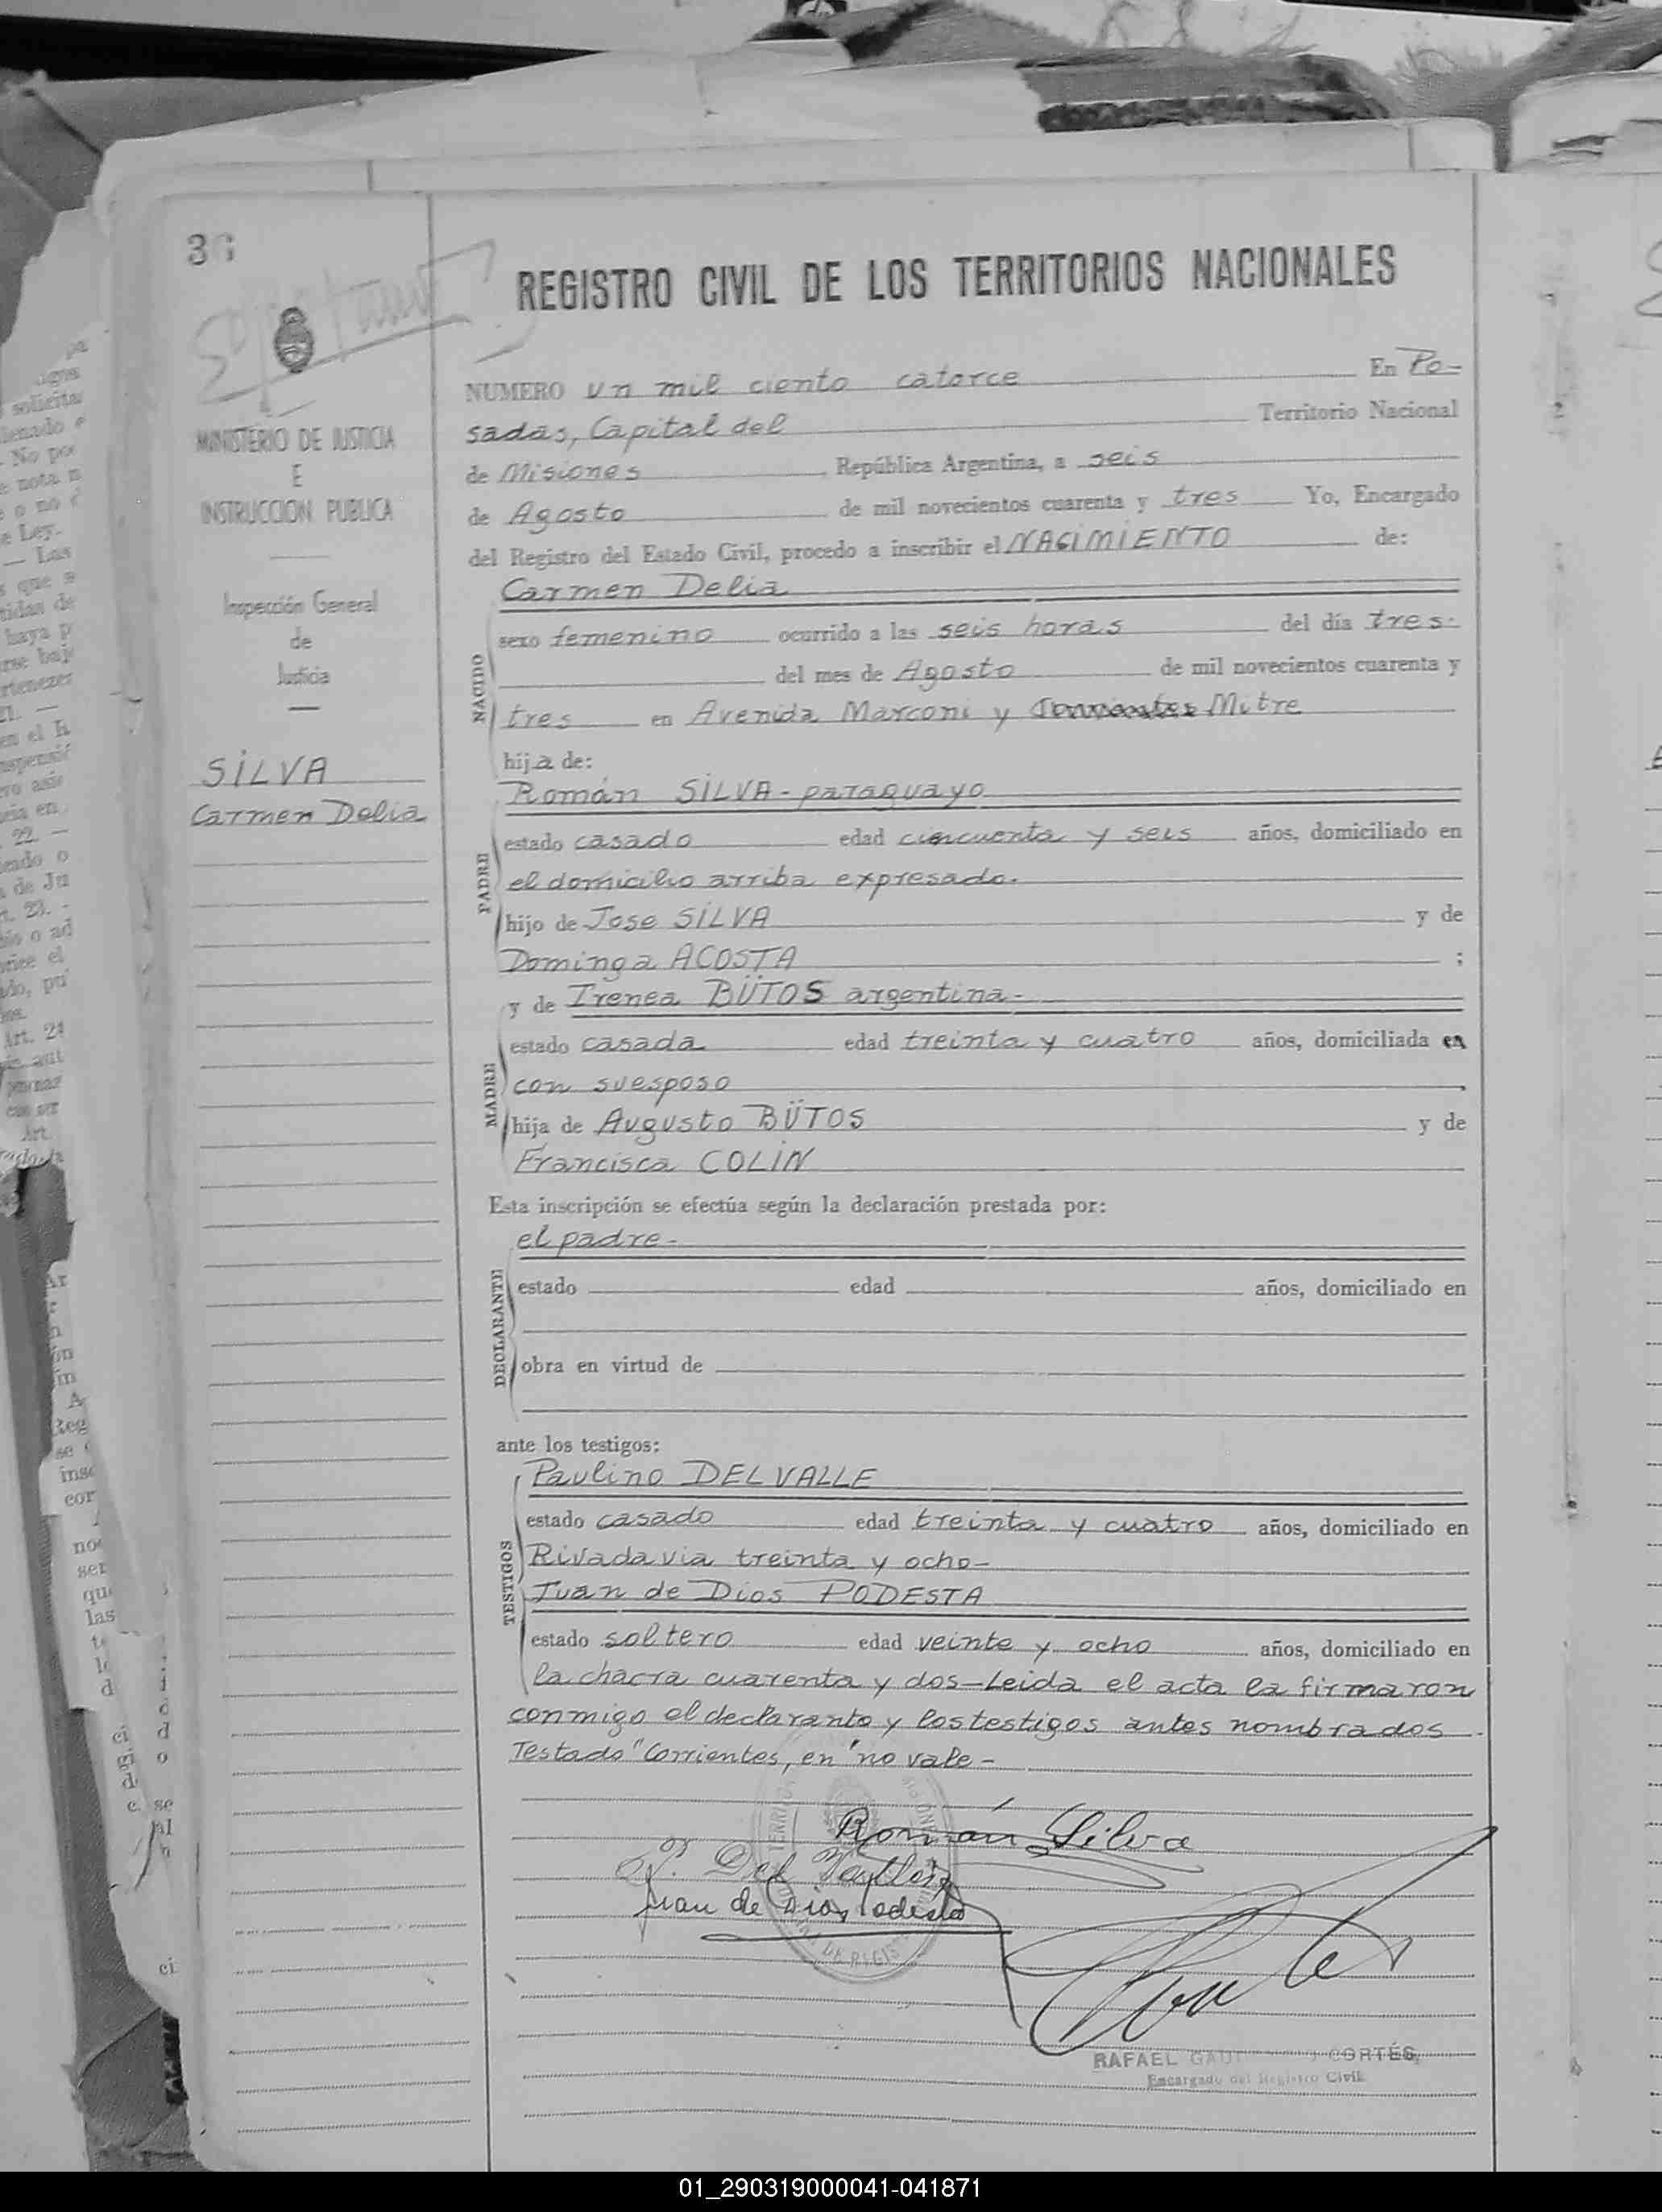 36
REGISTRO CIVIL DE LOS TERRITORIOS NACIONALES
MINISTERIO DE JUSTICIA
E
INSTRUCCION PUBLICA
Inspección General
de
Justicia
SILVA
Carmen Delia
NUMERO un mil ciento catorce En Po-
sadas, Capital del Territorio Nacional
de Misiones República Argentina, a seis
de Agosto de mil novecientos cuarenta y tres Yo, Encargado
del Registro del Estado Civil, procedo a inscribir el NACIMIENTO de:
Carmen Delia
NACIDO
sexo femenino ocurrido a las seis horas del día tres-
del mes de Agosto de mil novecientos cuarenta y
tres en Avenida Marconi y Corrientes Mitre
hija de:
Román SILVA-paraguayo
PADRE
estado casado edad cincuenta y seis años, domiciliado en
el domicilio arriba expresado.
hijo de Jose SILVA y de
Dominga ACOSTA ;
y de Irenea BÜTOS argentina-
MADRE
estado casada edad treinta y cuatro años, domiciliada en
con suesposo
hija de Augusto BÜTOS y de
Francisca COLIN
Esta inscripción se efectúa según la declaración prestada por:
el padre-
DECLARANTE
estado edad años, domiciliado en
obra en virtud de
ante los testigos:
Paulino DELVALLE
TESTIGOS
estado casado edad treinta y cuatro años, domiciliado en
Rivadavia treinta y ocho-
Juan de Dios PODESTA
estado soltero edad veinte y ocho años, domiciliado en
la chacra cuarenta y dos-Leida el acta la firmaron
conmigo el declarante y los testigos antes nombrados
Testado "Corrientes, en "no vale-
Román Silva
P. Del Valle
Juan de Dios Podesta
RAFAEL CORTÉS,
Encargado del Registro Civil
01_290319000041-041871